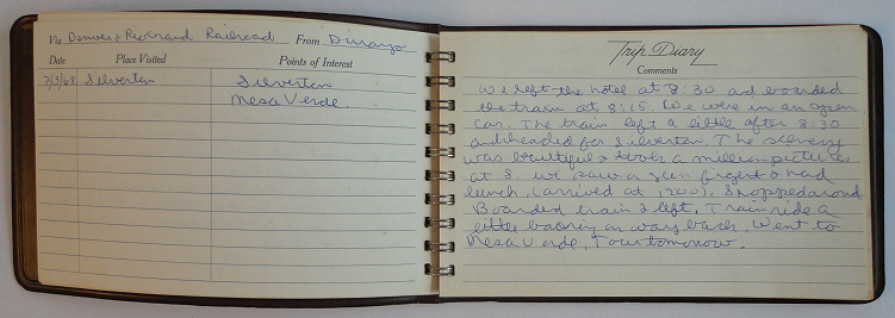 Via Denver & Rio Grand Railroad From Durango
Date Place Visited Points of Interest
7/9/68 Silverton Silverton
Mesa Verde.
Trip Diary
Comments
We left the hotel at 8:30 and boarded
the train at 8:15. We were in an open
car. The train left a little after 8:30
and headed for Silverton. The scenery
was beautiful & took a million pictures
at S. we saw a gun & had
lunch. (arrived at 1200). Shopped around
Boarded train & left. Train ride a
little boring on way back. Went to
Mesa Verde. Tour tomorrow.